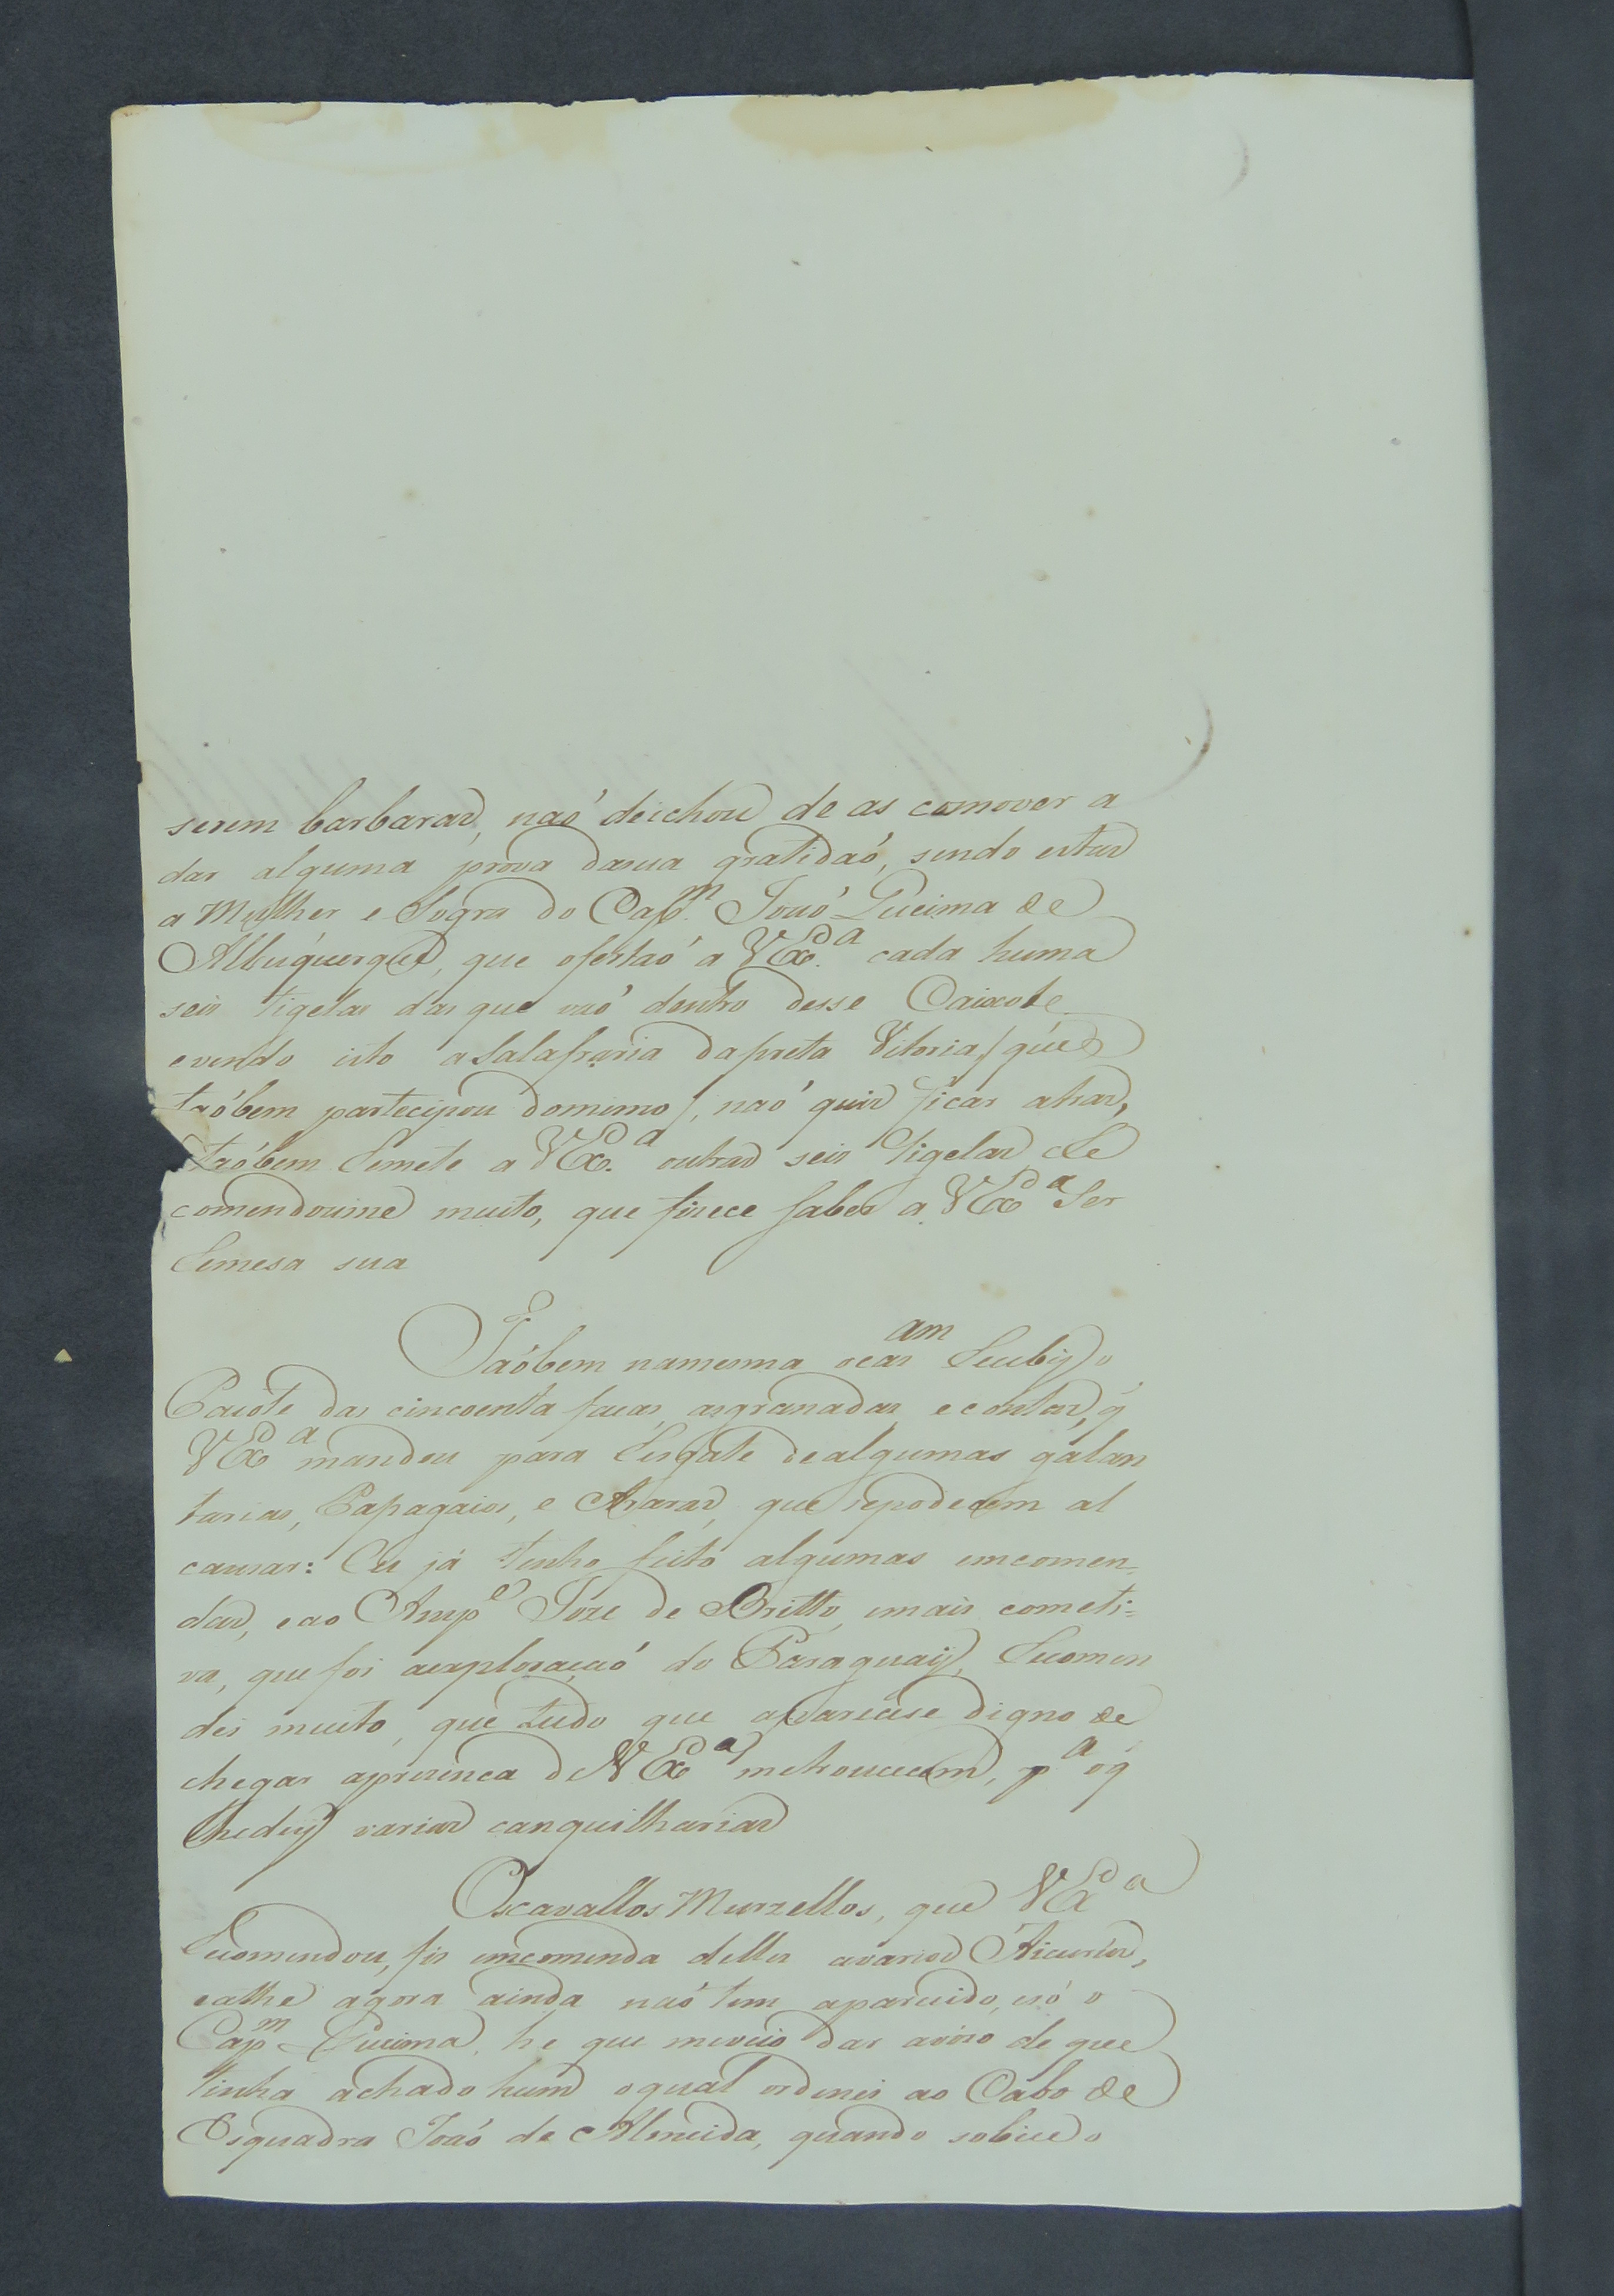 serem barbaras, naó deichou de as comover a
dar alguma prova dasua gratidaó, sendo estas
a Mulher e Sogra do Cap.m Joaó Queima de
Albuquerque, que ofertaó a VEx.a cada huma
seis tigelas das que vaó dentro desse Caixote
evendo isto a Salafraria dapreta Vitoria/ que
taóbem partecipou domimo/, naó quis ficar atras,
taóbem Remete a VEx.a outras seis tigelas Re
comendoume muito, que fizece saber a VEx.a Ser
Remesa sua
Taóbem namesma ocasam Recebij o
Caixote das cincoenta facas, asgranadas, e contas, q̃
VEx.a mandou para Resgate dealgumas galan
tarias, Papagaios, e Araras, que sepodecem al
cansar: Eu já tenho feito algumas emcomen-
das, eao Anspe Joze de Britto, emais cometi=
va, que foi aexploraçaó do Paraguaij, Recomen
dei muito, que tudo que aparecese digno de
chegar apresenca de VEx.a metroucecem, p.a oq̃
lhedeij varias canquilharias
Oscavallos Murzellos, que VEx.a
Recomendou, fis emcomenda delles avarios Aicurus,
eathe agora ainda naó tem aparecido, esó o
Cap.m Queima, he que meveio dar aviso de que
tinha achado hum oqual ordenei ao Cabo de
Esquadra Joaó de Almeida, quando sobice o